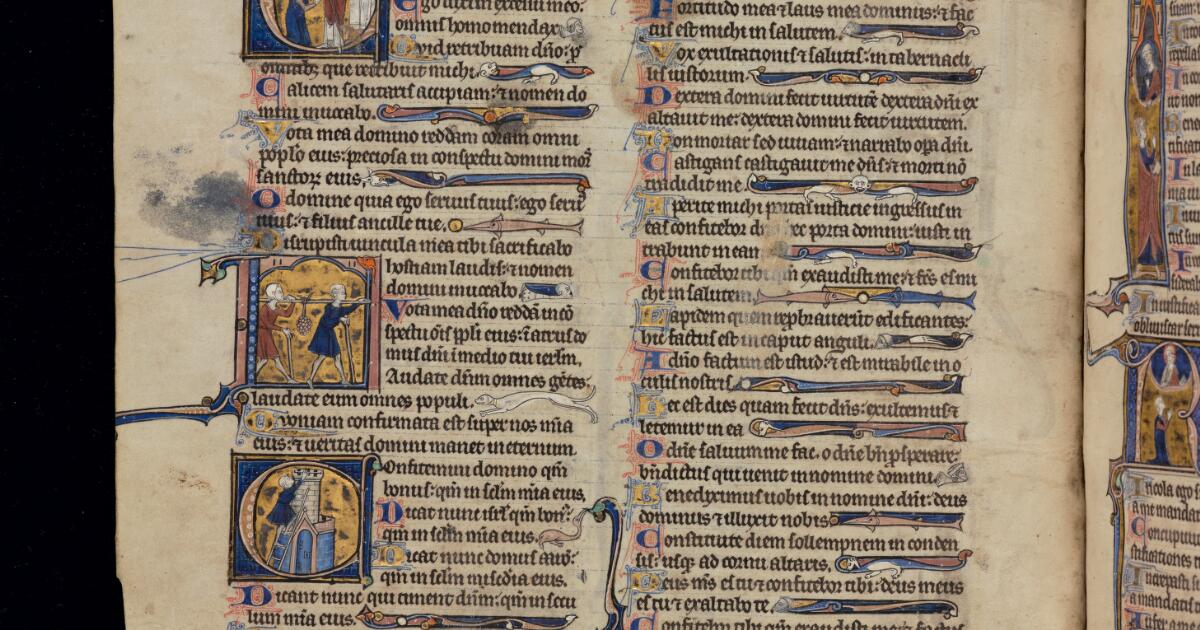 Ego dixi in excessu meo:
omnis homo mendax
Quid retribuam dn̄o: p̄
omnib; que retribuit michi
Calicem salutaris accipiam: ⁊ nomen do
mini inuocabo.
Vota mea domino reddam coram omni
pop̄lo eius: preciosa in conspectu domini mor̄
sanctoꝝ eius.
O domine quia ego seruus tuus: ego seru
tuus: ⁊ filius ancille tue.
Disrupisti uincula mea tibi sacrificabo
hostiam laudis: ⁊ nomen
domini inuocabo
Vota mea dn̄o reddā in cō
spectu oīs pp̄li eius: ī atriis do
mus dn̄i ī medio tui ierl̄m.
Laudate dn̄m omnes gētes:
laudate eum omnes populi.
Quoniam confirmata est super nos mīa
eius: ⁊ ueritas domini manet in eternum.
Confitemini domino qm̄
bonus: qm̄ in sc̄lm mīa eius.
Dicat nunc isrl̄ qm̄ bon᷒:
qm̄ in sc̄lm mīa eius.
Dicat nunc domus aarō:
qm̄ in sc̄lm mīsc̄dia eius.
Dicant nunc qui timent dn̄m: qm̄ in secu
lum mīa eius.
Fortitudo mea ⁊ laus mea dominus: ⁊ fac
tus est michi in salutem.
Vox exultationis ⁊ salutis: in tabernacu
lis iustorum
Dextera domini fecit uirtutē dextera dn̄i ex
altauit me: dextera domini fecit uirtutem.
Non moriar sed uiuam: ⁊ narrabo opa dn̄i.
Castigans castigauit me dn̄s: ⁊ morti nō
tradidit me.
Aperite michi portas iusticie ingressus in
eas confitebor dn̄o hec porta domini: iusti in
trabunt in eam
Confitebor tibi qm̄ exaudisti me: ⁊ fc̄s es mi
chi in salutem.
Lapidem quem reprobauerūt edificantes:
hic factus est in caput anguli.
A dn̄o factum est istud: ⁊ est mirabile in o
culis nostris.
Hec est dies quam fecit dn̄s: exultemus ⁊
letemur in ea
O dn̄e saluum me fac. o dn̄e bn̄ prosperare:
bn̄dictus qui uenit in nomine domini.
Benediximus uobis in nomine dn̄i: deus
dominus ⁊ illuxit nobis
Constituite diem sollempnem in conden
sis: usq; ad cornu altaris.
Deus m̄s es tu ⁊ confitebor tibi: deus meus
es tu ⁊ exaltabo te.
Confitebor tibi qm̄ exaudisti me: ⁊ factus
Incola ego
a me mandat
Concupiuit
stificationes
Increpasti
a mandatis
Aufer a me